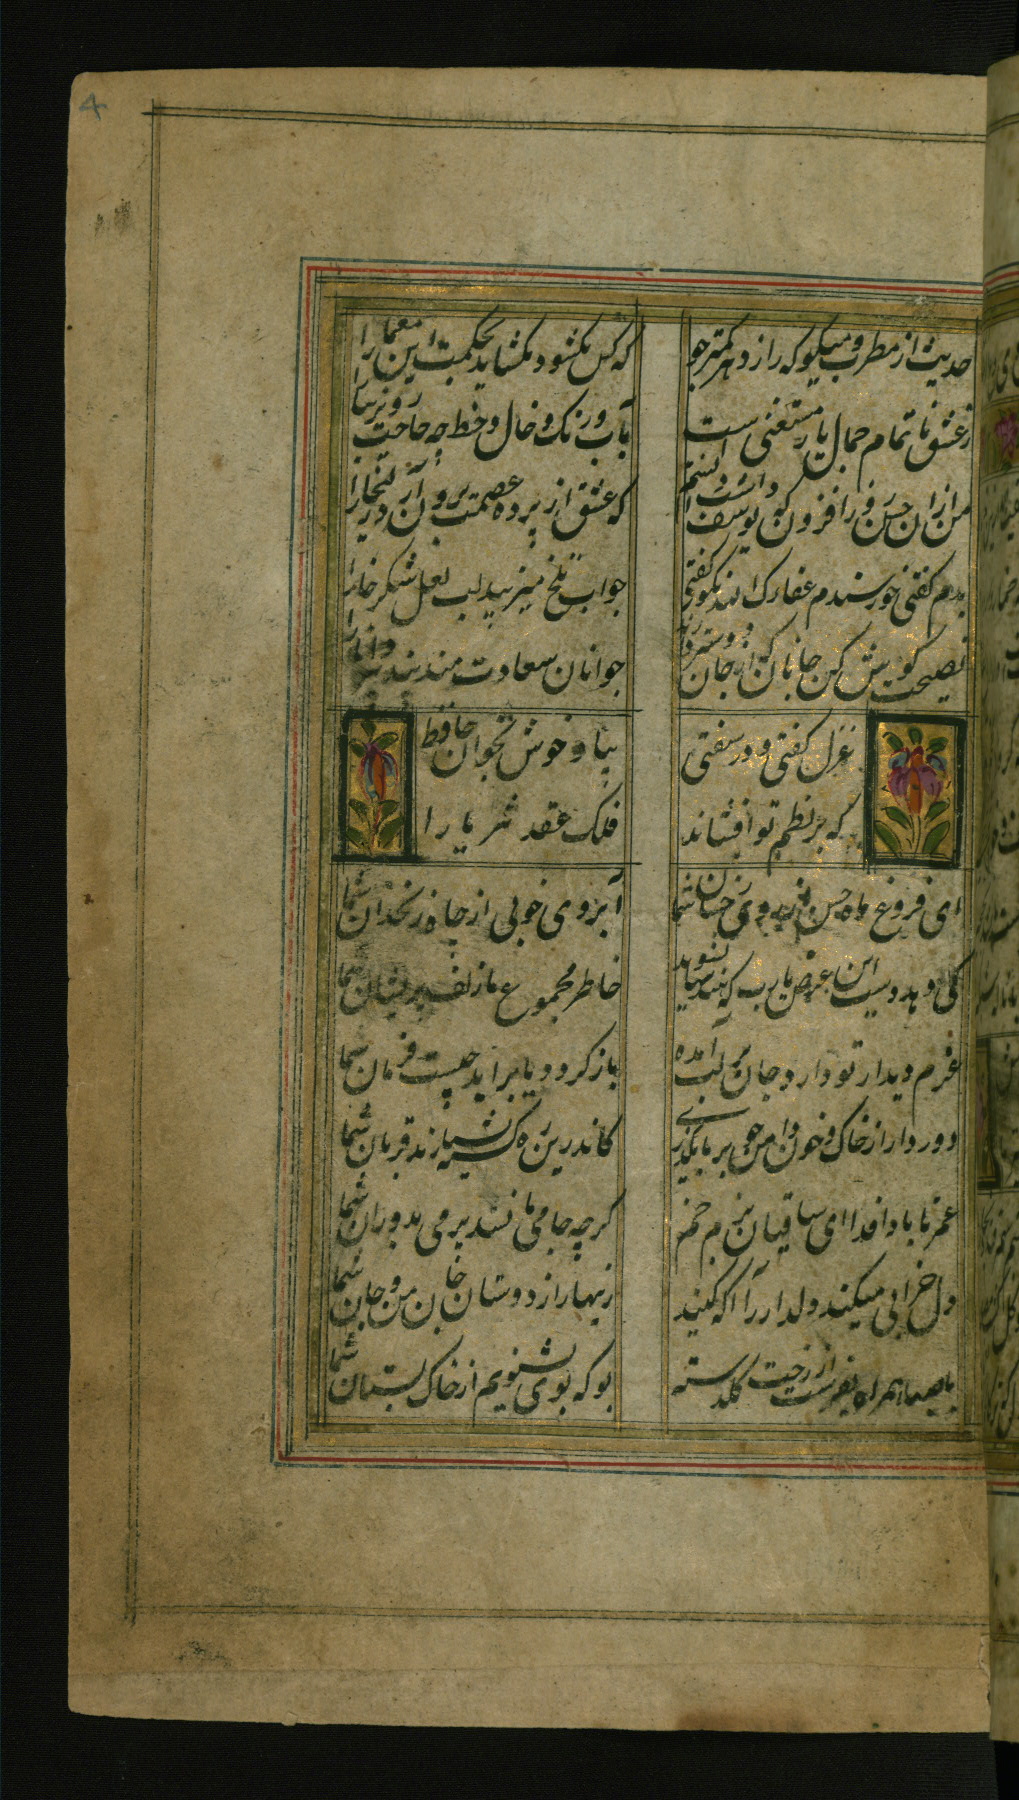 4
حدیث از مطرب و می کو و راز دهر کمتر جو
که کس نکشود و نکشاید بحکمت این معما را
ز عشق ناتمام ما جمال یار مستغنی است
بآب و رنک و خال و خط چه حاجت روی زیبا را
من از ان حسن روز افزون که یوسف داشت دانستم
که عشق از پرده عصمت برون آرد زلیخا را
بدم کفتی و خورسندم عفاک الله نکو کفتی
جواب تلخ میزیبد لب لعل شکرخا را
نصیحت کوش کن جانان که از جان دوستر دارند
جوانان سعادت مند پند پیر دانا را
غزل کفتی و در سفتی
بیا و خوش بخوان حافظ
که بر نظم تو افشاند
فلک عقد ثریا را
ای فروغ ماه حسن از روی رخسان شما
آبروی خوبی از چاه زنخدان شما
کی دهد دست این غرض یارب که همدستان شوند
خاطر مجموع ما زلف پریشان شما
عزم دیدار تو دارد جان بر لب آمده
باز کردد یا براید چیست فرمان شما
دور دار از خاک و خون دامن چو بر ما بکذری
کاندرین ره کشته بسیارند قربان شما
عمرتا بادا فدا ای ساقیان بزم جم
کرچه جام می ما نشد پر می بدوران شما
دل خرابی میکند دلدار را اکه کنید
زینهار از دوستان جان من و جان شما
با صبا همراه بفرست از رخت کلدسته
بو که بوی بشنویم از خاک بستان شما